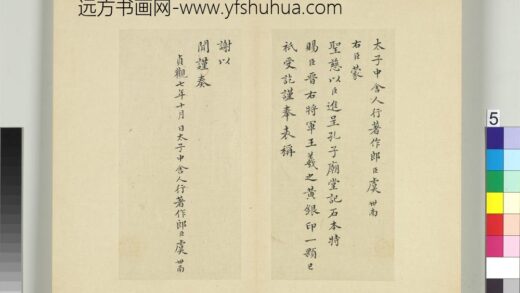 远方书画网-www.yfshuhua.com
太子中舍人行著作郎臣虞世南
右臣蒙
聖慈以臣進呈孔子廟堂記石本特
賜臣晉右將軍王羲之黄銀印一顆臣
祇受訖謹奉表稱
謝以
聞謹奏
貞觀七年十月日太子中舍人行著作郎臣虞世南
5